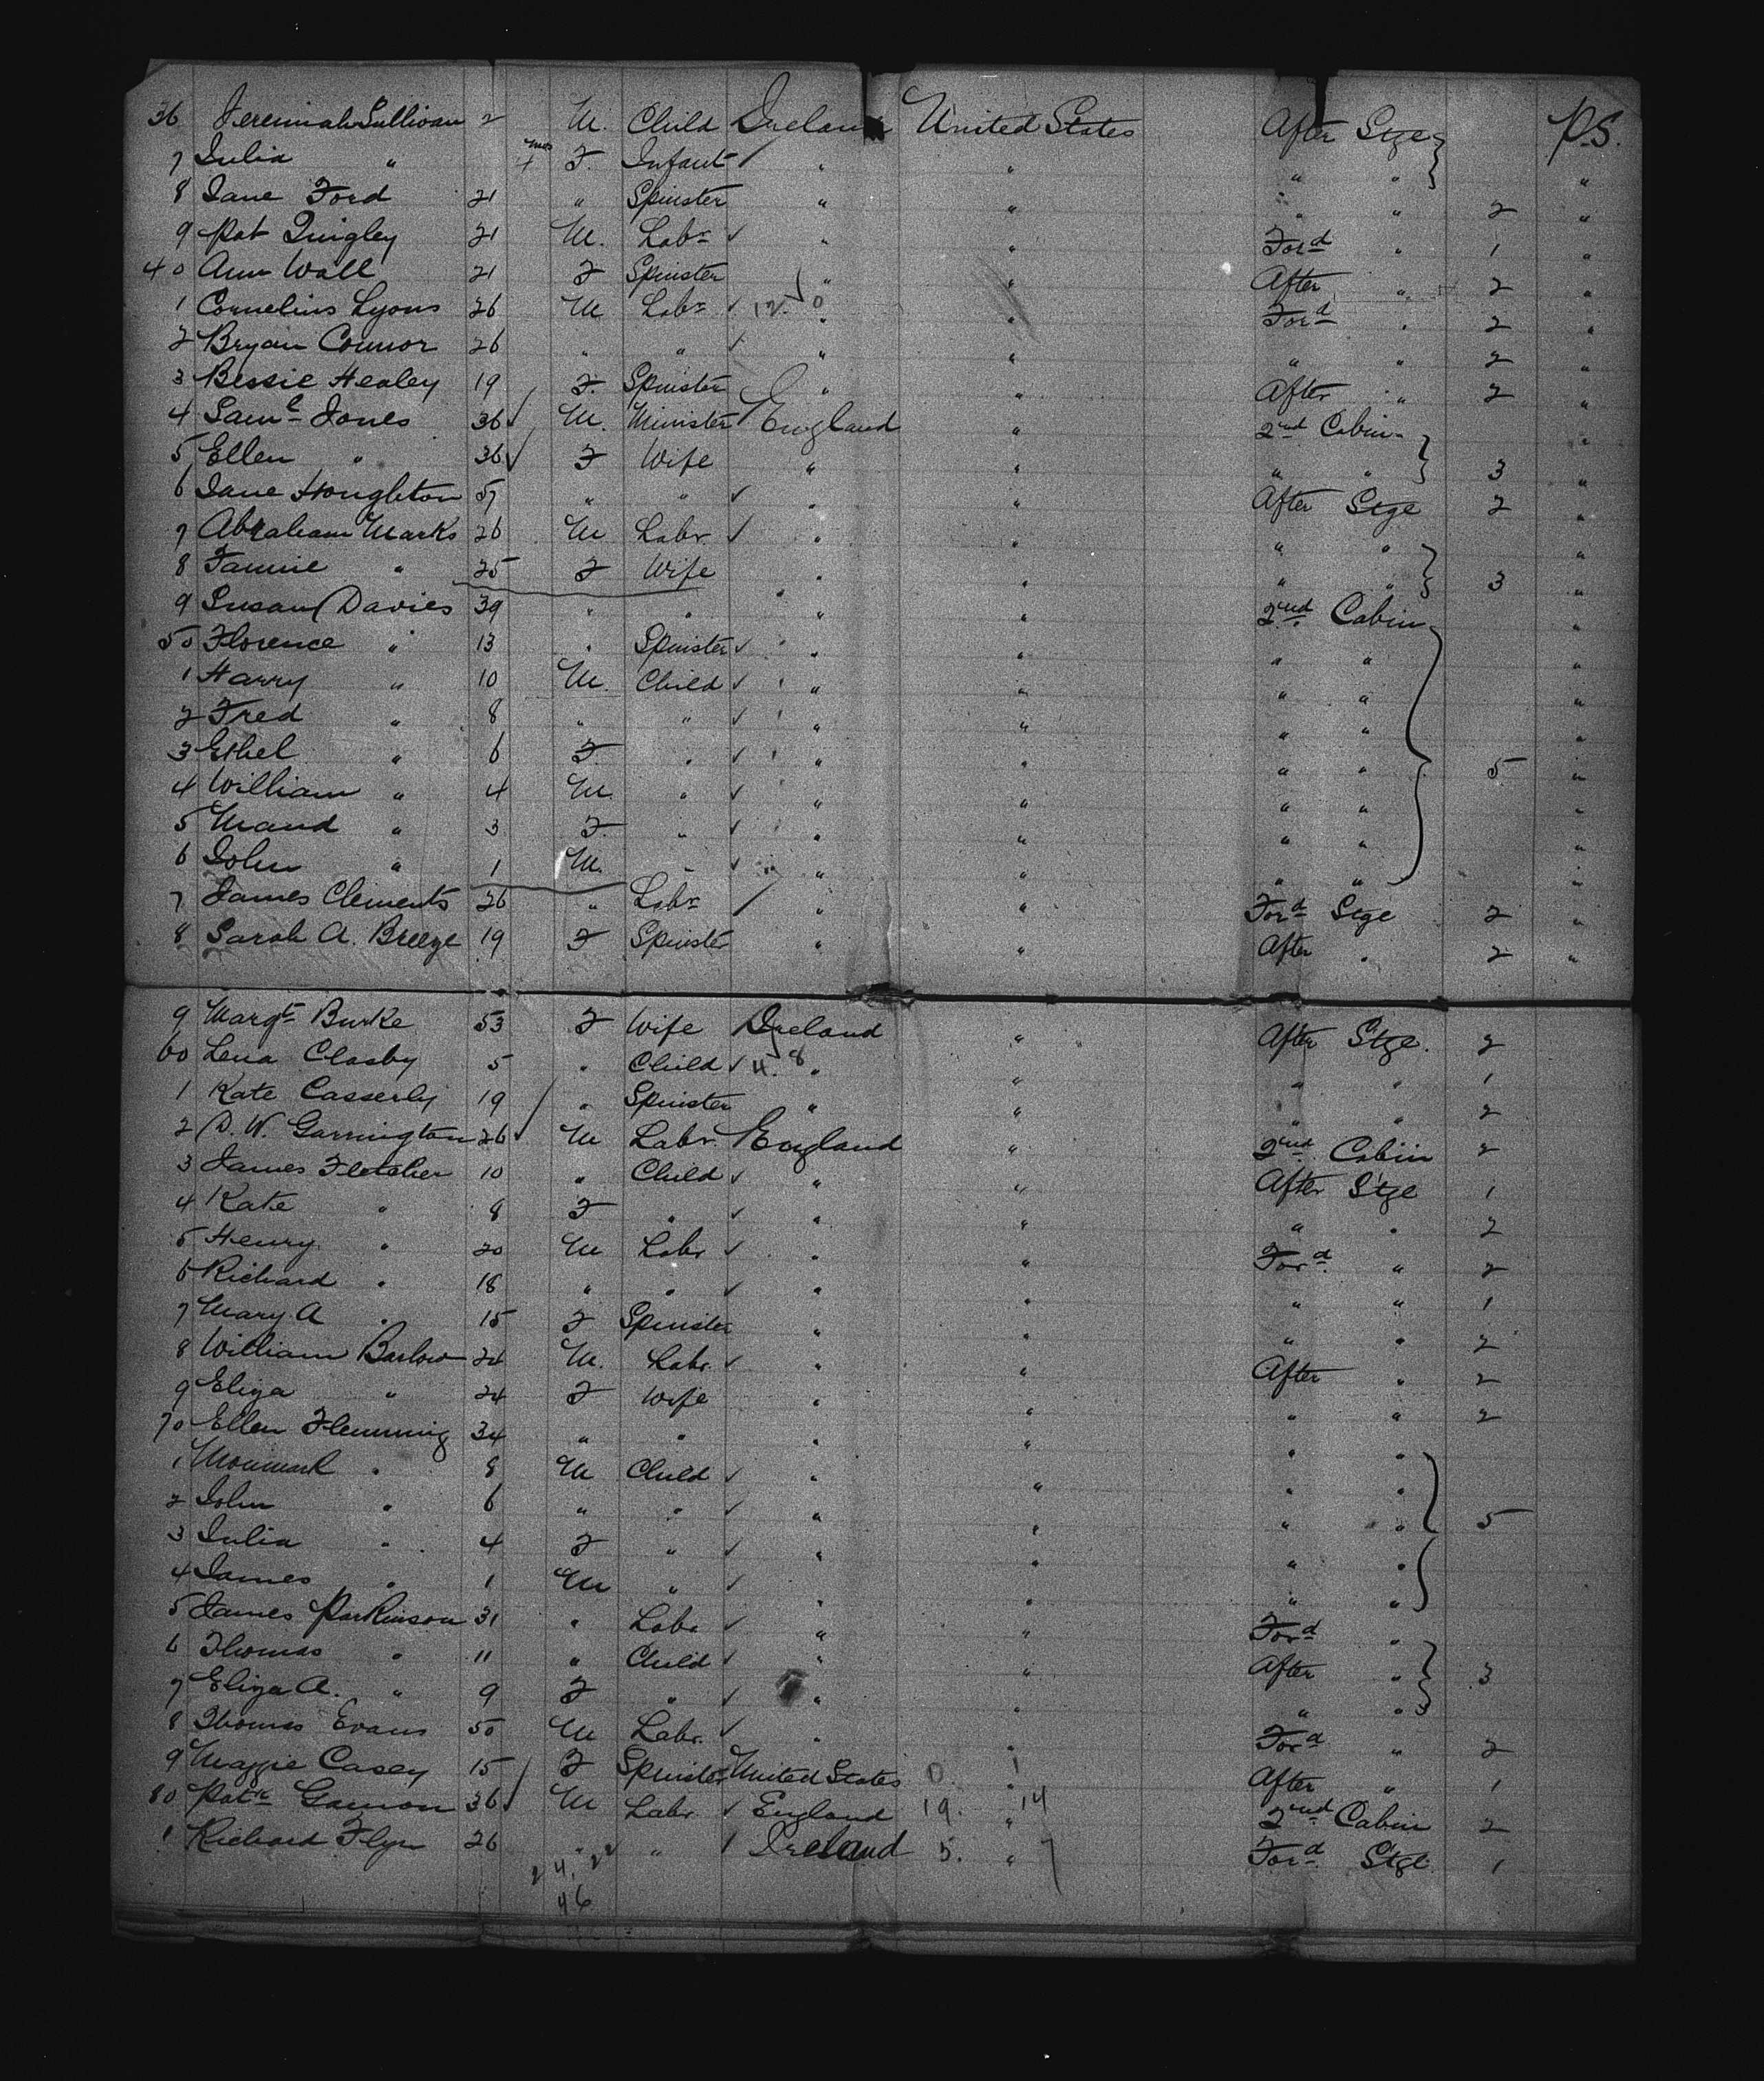 36 Jeremiah Sullivan 2 M. Child Ireland United States After Stge P.S.
7 Julia " 4 mos F. Infant " " " " "
8 Jane Ford 21 " Spinster " " " " 2 "
9 Pat Quigley 21 M. Labr " " Ford " 1 "
40 Ann Wall 21 F Spinster " " After " 2 "
1 Cornelius Lyons 26 M Labr 12 0 " " Ford " 2 "
2 Bryan Connor 26 " " " " " " 2 "
3 Bessie Healey 19 F. Spinster " " After " 2 "
4 Saml Jones 36 M. Minister England " 2nd Cabin "
5 Ellen " 36 F Wife " " " " 3 "
6 Jane Houghton 57 " " " " After Stge 2 "
7 Abraham Marks 26 M Labr " " " " "
8 Fannie " 25 F Wife " " " " 3 "
9 Susan Davies 39 " " " " 2nd Cabin "
50 Florence " 13 " Spinster " " " " "
1 Harry " 10 M. Child " " " " "
2 Fred " 8 " " " " " " "
3 Ethel " 6 F. " " " " " 5 "
4 William " 4 M. " " " " " "
5 Maud " 3 F. " " " " " "
6 John " 1 M. " " " " " "
7 James Clements 26 " Labr " " Ford Stge 2 "
8 Sarah A. Breeze 19 F Spinster " " After " 2 "
9 Margt Burke 53 F Wife Ireland " After Stge. 2
60 Lena Clasby 5 " Child 4. 8 " " " " 1
1 Kate Casserly 19 " Spinster " " " " 2
2 D. W. Garrington 26 M Labr. England " 2nd Cabin 2
3 James Fletcher 10 " Child " " After Stge 1
4 Kate " 8 F " " " " " 2
5 Henry " 20 M Labr " " Ford " 2
6 Richard " 18 " " " " " " 1
7 Mary A " 15 F Spinster " " " " 2
8 William Barlow 24 M. Labr. " " After " 2
9 Eliza " 24 F Wife " " " " 2
70 Ellen Flemming 34 " " " " " "
1 " 8 M Child " " " "
2 John " 6 " " " " " " 5
3 Julia " 4 F " " " " "
4 James " 1 M " " " " "
5 James Parkinson 31 " Labr " " Ford "
6 Thomas " 11 " Child " " After " 3
7 Eliza A. " 9 F " " " " "
8 Thomas Evans 50 M Labr. " " Ford " 2
9 Maggie Casey 15 F Spinster United States 0. 1 " After " 1
80 Patk Gannon 36 M Labr England 19. 14 " 2nd Cabin 2
1 Richard Flyn 26 " " Ireland 5. 7 " Ford Stge. 1
2 4. 22
46